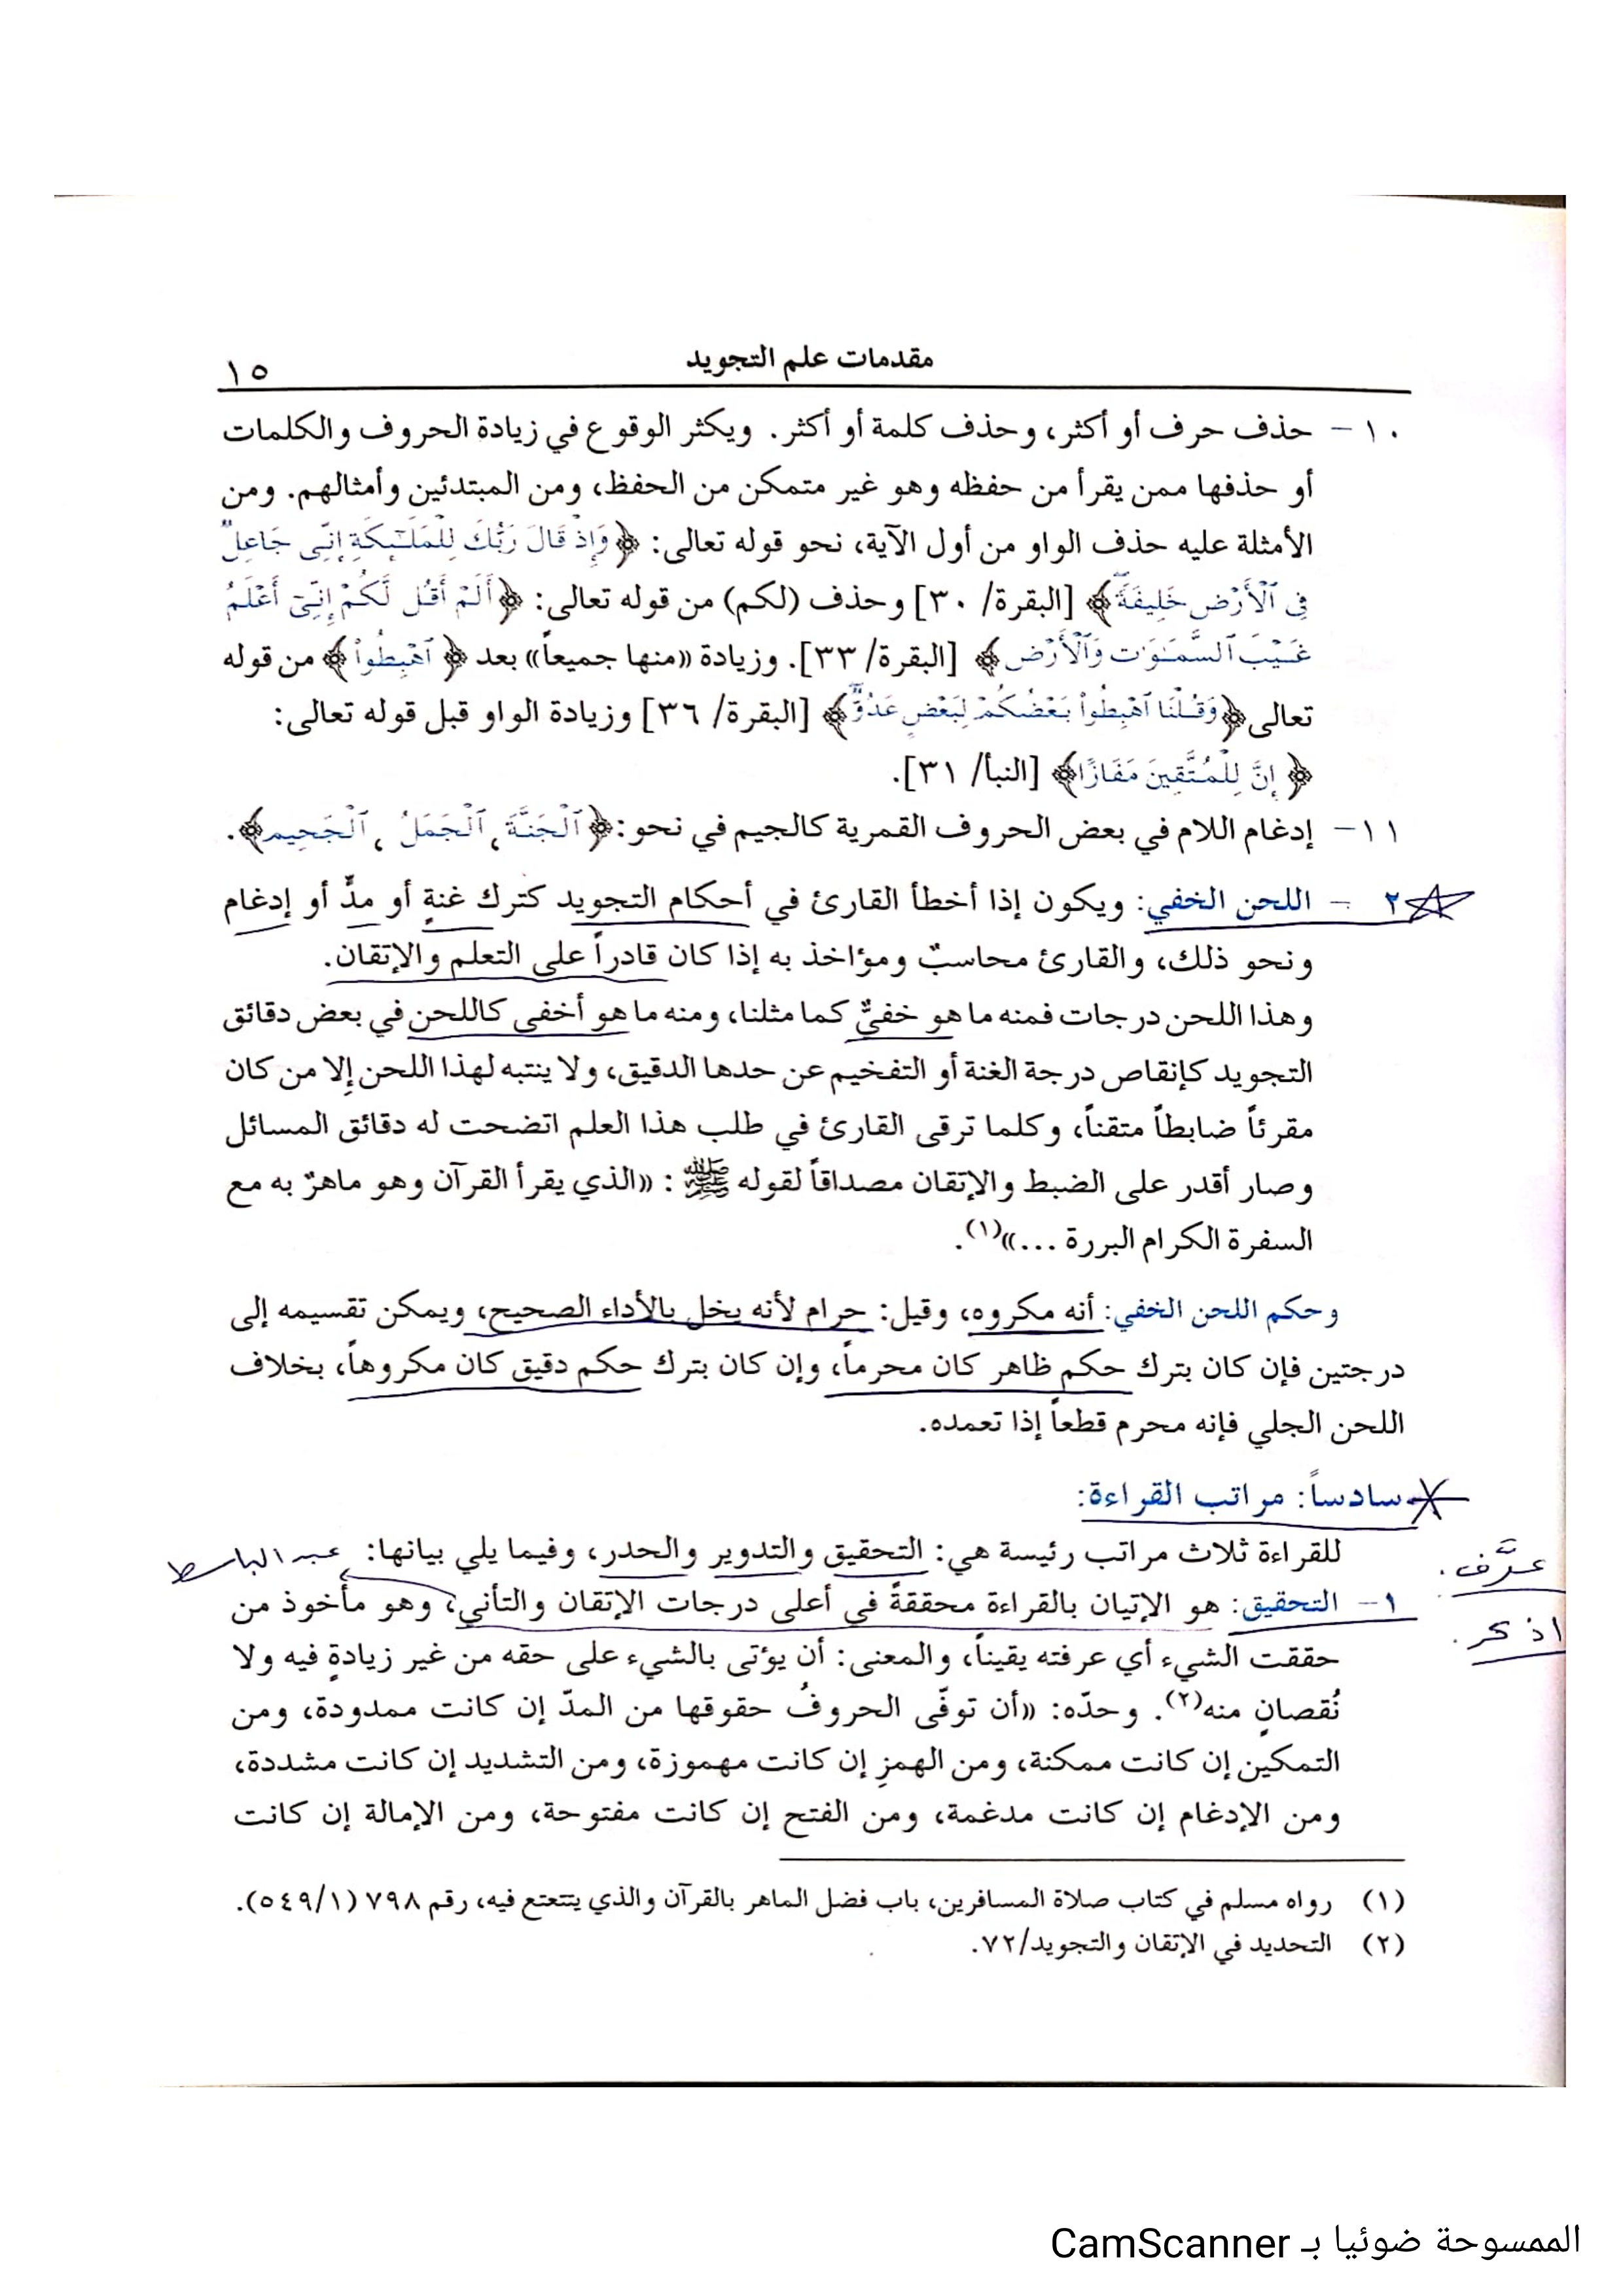 مقدمات علم التجويد
١٥
١٠- حذف حرف أو أكثر، وحذف كلمة أو أكثر. ويكثر الوقوع في زيادة الحروف والكلمات
أو حذفها ممن يقرأ من حفظه وهو غير متمكن من الحفظ، ومن المبتدئين وأمثالهم. ومن
الأمثلة عليه حذف الواو من أول الآية، نحو قوله تعالى: ﴿وَإِذْ قَالَ رَبُّكَ لِلْمَلَـٰٓئِكَةِ إِنِّى جَاعِلٌ
فِى ٱلْأَرْضِ خَلِيفَةً﴾ [البقرة/ ٣٠] وحذف (لكم) من قوله تعالى: ﴿أَلَمْ أَقُل لَّكُمْ إِنِّىٓ أَعْلَمُ
غَيْبَ ٱلسَّمَـٰوَٰتِ وَٱلْأَرْضِ﴾ [البقرة/ ٣٣]. وزيادة «منها جميعاً» بعد ﴿ٱهْبِطُوا۟﴾ من قوله
تعالى ﴿وَقُلْنَا ٱهْبِطُوا۟ بَعْضُكُمْ لِبَعْضٍ عَدُوٌّ﴾ [البقرة/ ٣٦] وزيادة الواو قبل قوله تعالى:
﴿إِنَّ لِلْمُتَّقِينَ مَفَازًا﴾ [النبأ/ ٣١].
١١- إدغام اللام في بعض الحروف القمرية كالجيم في نحو: ﴿ٱلْجَنَّةَ، ٱلْجَمَلُ، ٱلْجَحِيمِ﴾.
٢ - اللحن الخفي: ويكون إذا أخطأ القارئ في أحكام التجويد كترك غنةٍ أو مدٍّ أو إدغام
ونحو ذلك، والقارئ محاسبٌ ومؤاخذ به إذا كان قادراً على التعلم والإتقان.
وهذا اللحن درجات فمنه ما هو خفيٌّ كما مثلنا، ومنه ما هو أخفى كاللحن في بعض دقائق
التجويد كإنقاص درجة الغنة أو التفخيم عن حدها الدقيق، ولا ينتبه لهذا اللحن إلا من كان
مقرئاً ضابطاً متقناً، وكلما ترقى القارئ في طلب هذا العلم اتضحت له دقائق المسائل
وصار أقدر على الضبط والإتقان مصداقاً لقوله ﷺ : «الذي يقرأ القرآن وهو ماهرٌ به مع
السفرة الكرام البررة ...»(١).
وحكم اللحن الخفي: أنه مكروه، وقيل: حرام لأنه يخل بالأداء الصحيح، ويمكن تقسيمه إلى
درجتين فإن كان بترك حكم ظاهر كان محرماً، وإن كان بترك حكم دقيق كان مكروهاً، بخلاف
اللحن الجلي فإنه محرم قطعاً إذا تعمده.
سادساً: مراتب القراءة:
للقراءة ثلاث مراتب رئيسة هي: التحقيق والتدوير والحدر، وفيما يلي بيانها:
عبد الباسط
عرَّف.
١- التحقيق: هو الإتيان بالقراءة محققةً في أعلى درجات الإتقان والتأني، وهو مأخوذ من
اذكر.
حققت الشيء أي عرفته يقيناً، والمعنى: أن يؤتى بالشيء على حقه من غير زيادةٍ فيه ولا
نُقصانٍ منه(٢). وحدّه: «أن توفّى الحروفُ حقوقها من المدّ إن كانت ممدودة، ومن
التمكين إن كانت ممكنة، ومن الهمزِ إن كانت مهموزة، ومن التشديد إن كانت مشددة،
ومن الإدغام إن كانت مدغمة، ومن الفتح إن كانت مفتوحة، ومن الإمالة إن كانت
(١) رواه مسلم في كتاب صلاة المسافرين، باب فضل الماهر بالقرآن والذي يتتعتع فيه، رقم ٧٩٨ (٥٤٩/١).
(٢) التحديد في الإتقان والتجويد/٧٢.
الممسوحة ضوئيا بـ CamScanner